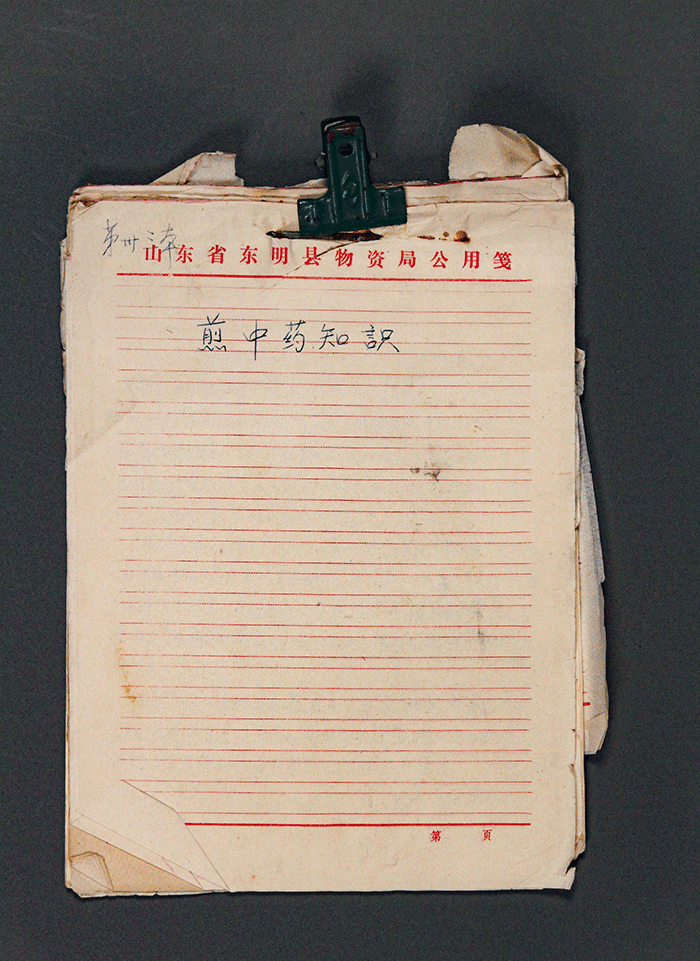 第卅三本
山东省东明县物资局公用笺
煎中药知識
第 页